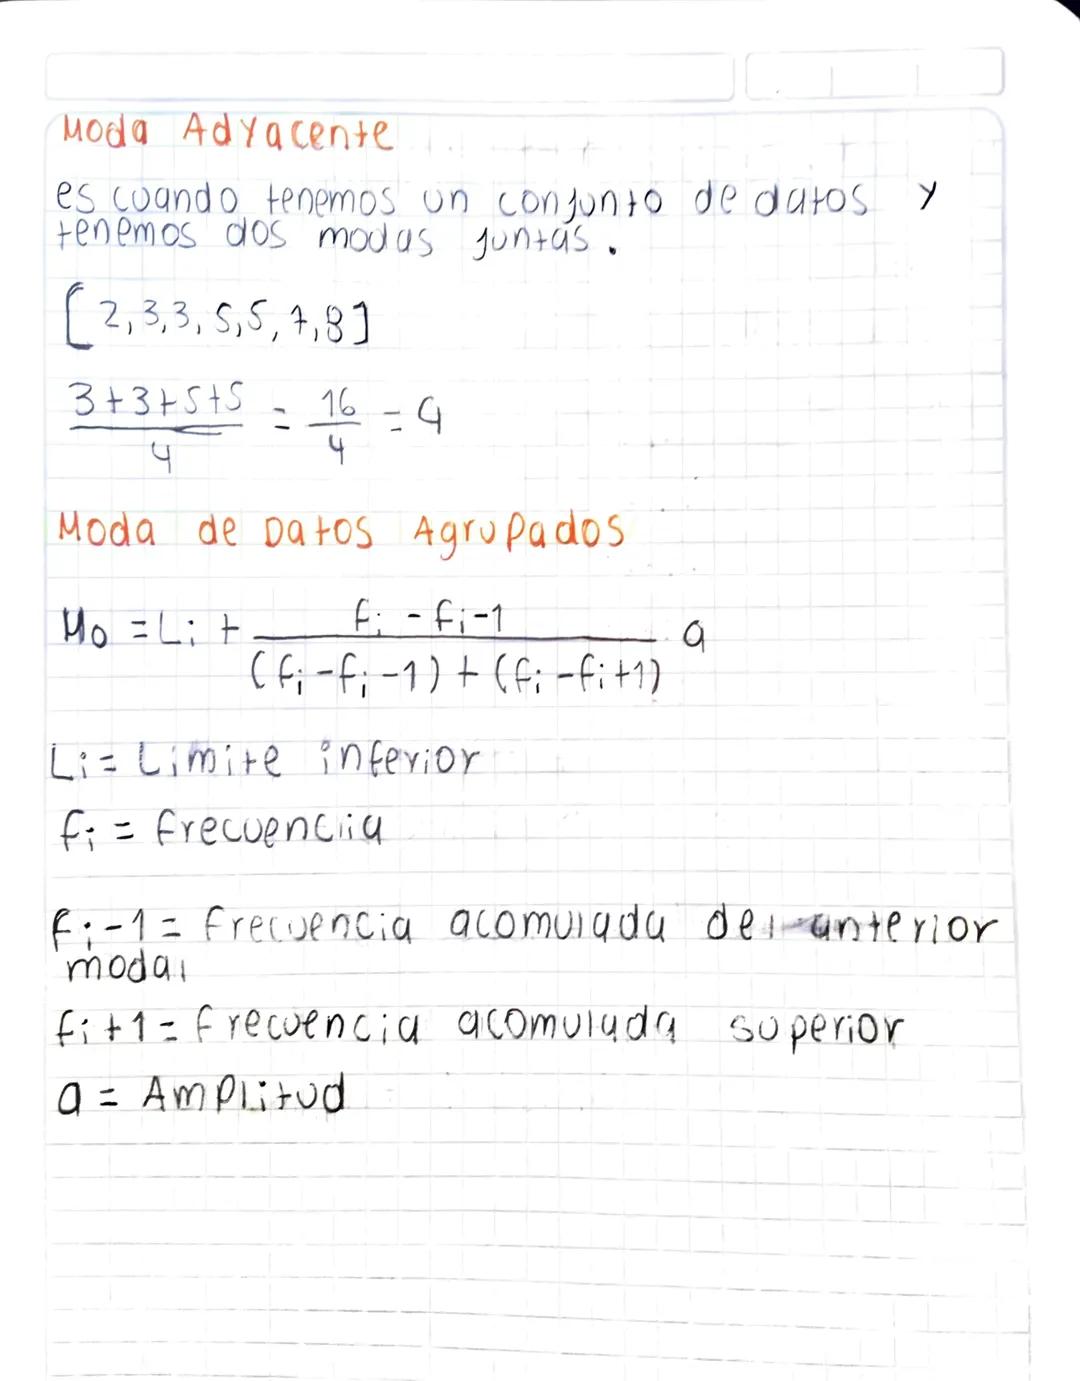 Moda Adyacente
es cuando tenemos un conjunto de datos y
tenemos dos modas juntas.
[2,3,3,5,5,7,8]
3+3+5+5 / 4 = 16 / 4 = 4
Moda de Datos Agrupados
Mo = Li + fi - fi-1 / (fi-fi-1) + (fi-fi+1) a
Li = Limite inferior
fi = frecuenciia
fi-1 = frecuencia acomulada del anterior
modal
fi+1 = frecuencia acomulada superior
a = Amplitud